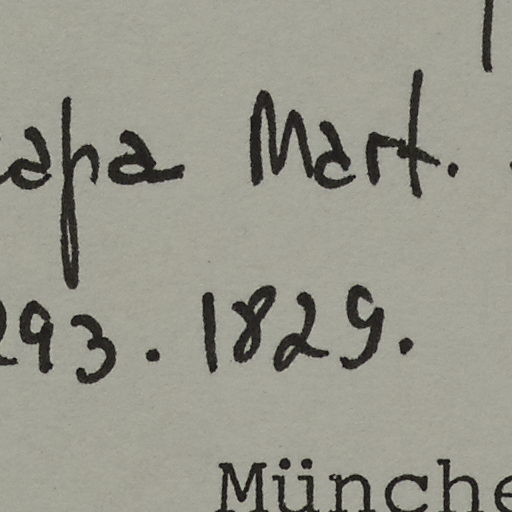 Mart.
293. 1829.
Münche